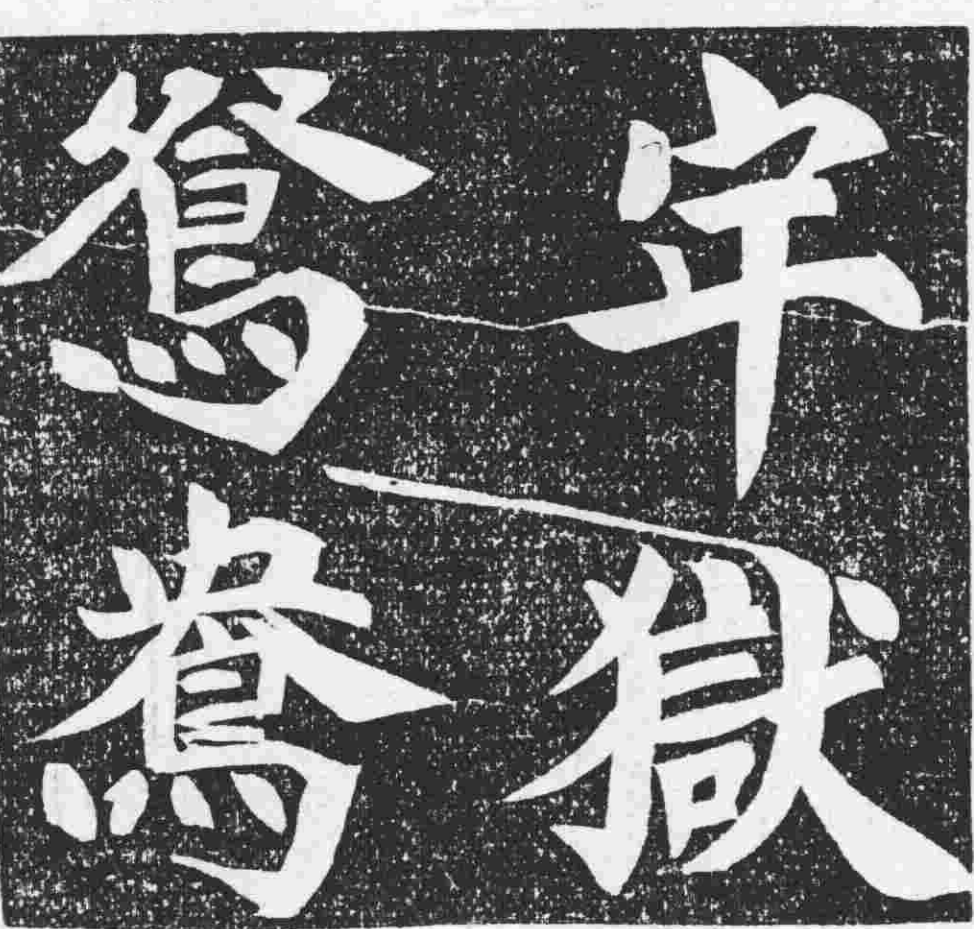 牢獄
鴛鴦